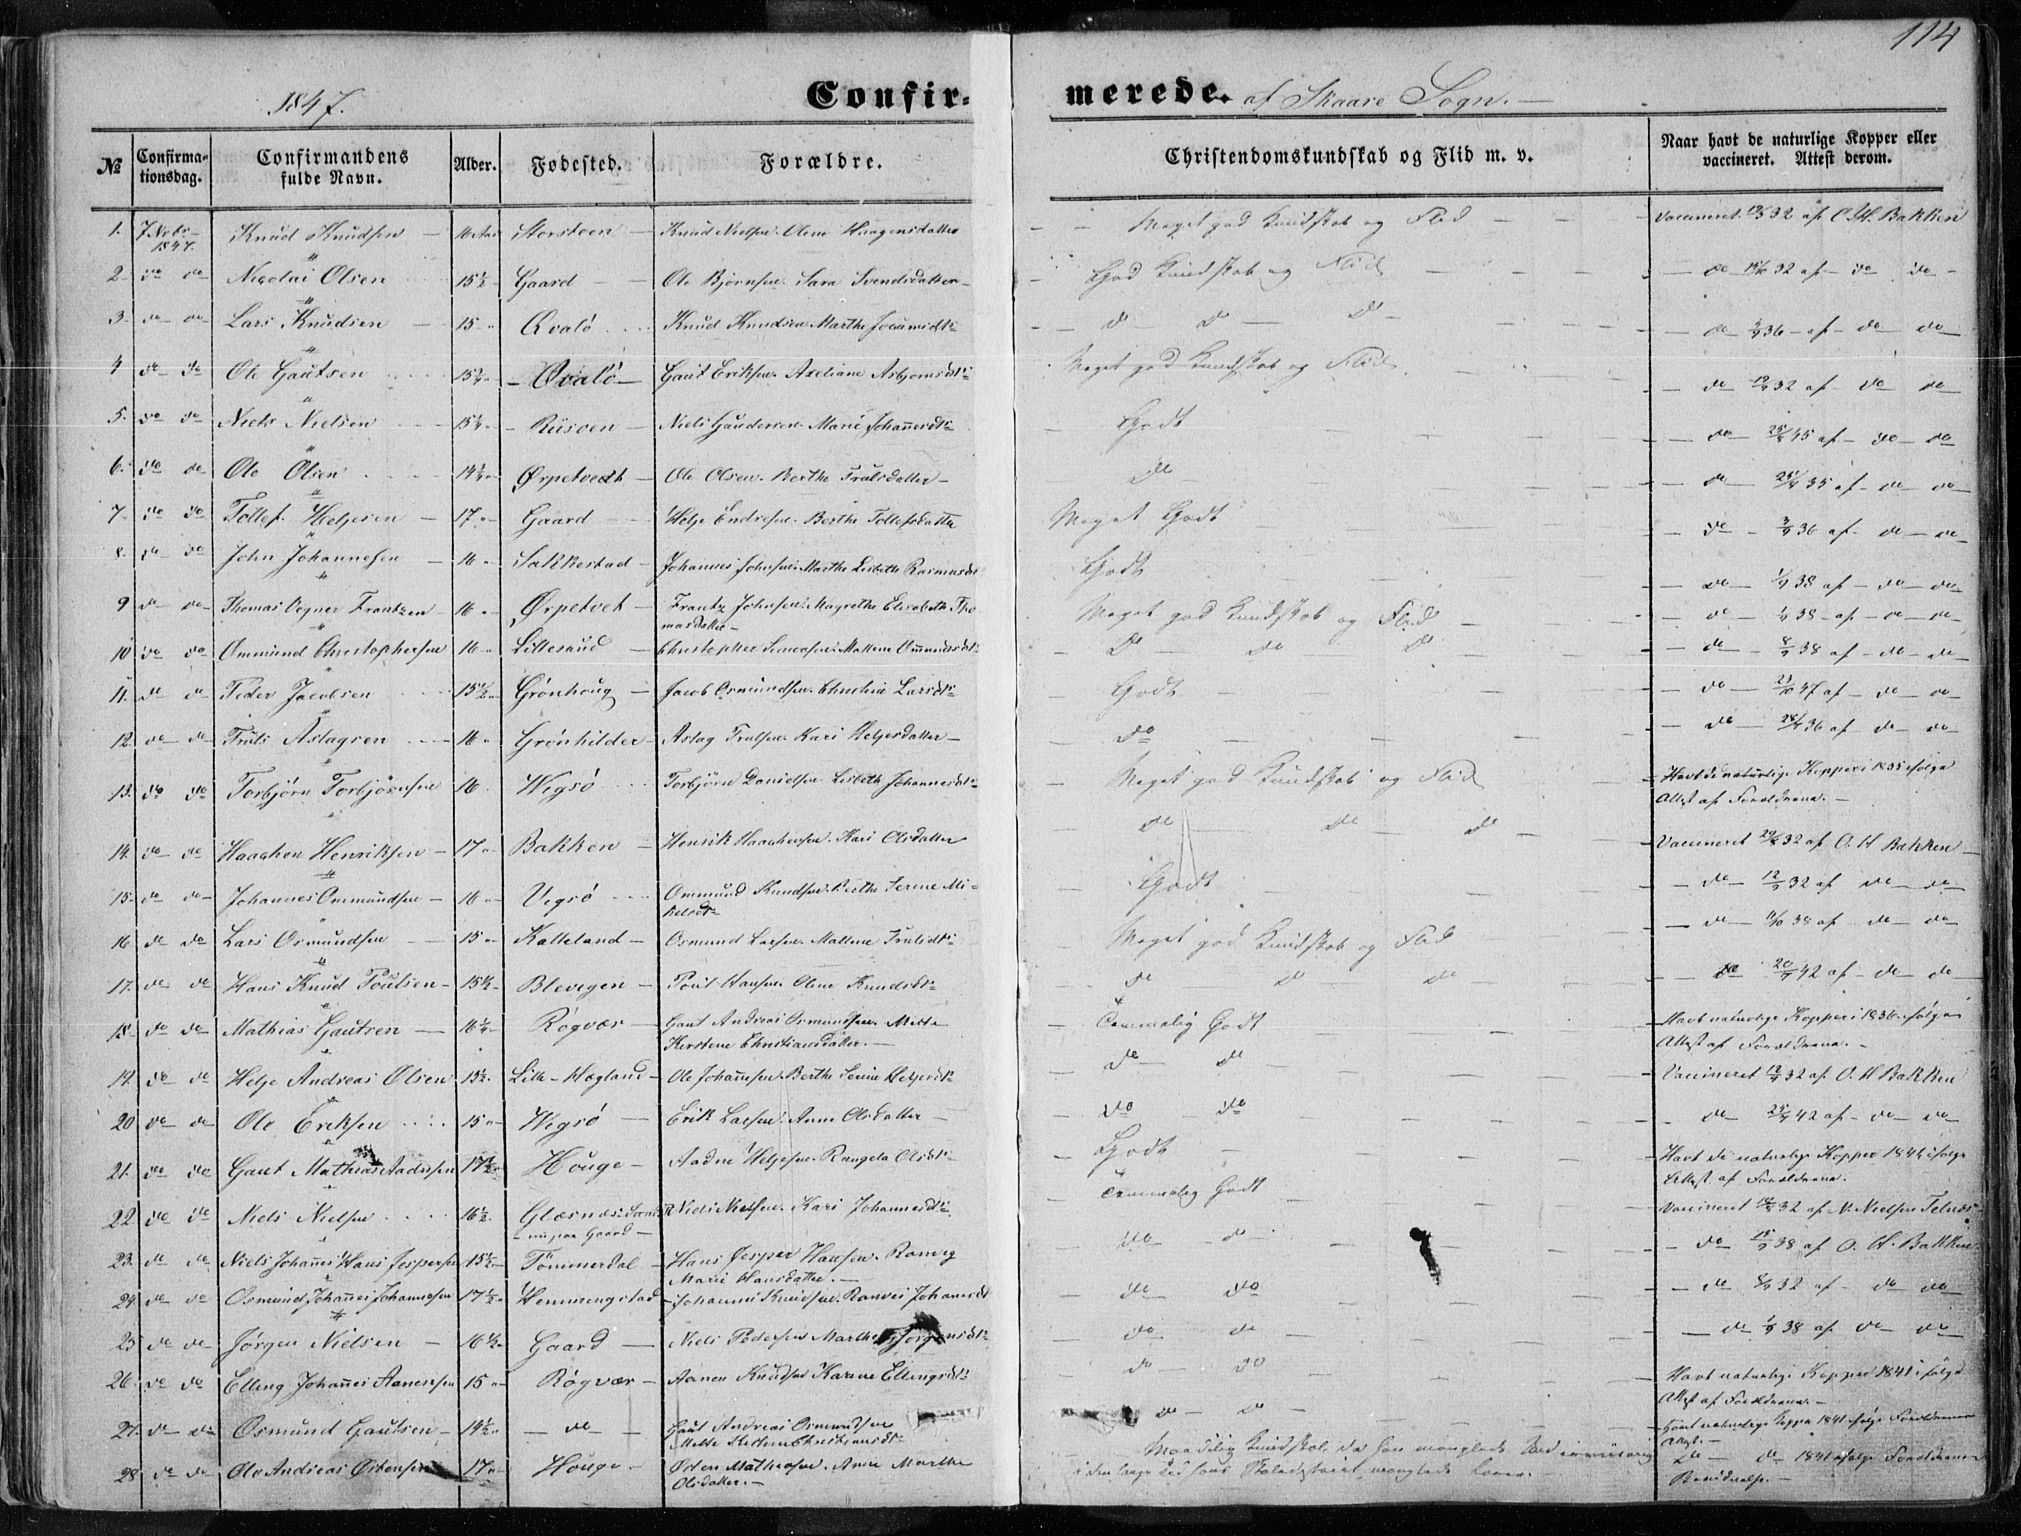 114
1847. Confir= merede. af Skaare Sogn.
№ Confirma- Confirmandens Alder. Fødested. Forældre. Christendomskundskab og Flid m. v. Naar havt de naturlige Kopper eller
tionsdag. fulde Navn. vaccineret. Attest derom.
1. 7 Nvbr 1847. Knud Knudsen 16 Aar Storstoen Knud Nielsen. Olene Haagensdatter Meget god Kundskab og Flid Vaccineret 32 af O. H Bakken
2 do do Nicolai Olsen 15½ Gaard Ole Bjørnsen. Sara Svendsdatter God Kundskab og Flid do 32 af do do
3 do do Lars Knudsen 15 Qvalø Knud Knudsen. Marthe D D D do 36 af do do
4 do do Ole Gautsen Qvalø Gaut Eriksen. Axeliane Asbjørnsdtr Meget god Kundskab og Flid do 32 af do do
5. do do Niels Nielsen Risøen Niels Gaudersen. Marie Johannesdtr Godt do 45 af do do
6. do do Ole Olsen 14½ Ørpetvedt Ole Olsen. Berthe Trulsdatter do do 35 af do do
7 do do Tollef Heljesen 17 Gaard Helje Endresen. Berthe Tollefsdatter Meget Godt do 3/9 36 af do do
8. do do John Johannesen 16 Sakkestad Johannes Johnsen. Marthe Lisbeth Rasmusdtr Godt do 38 af do do
9 do do Thomas Vegner Frantzen 16 Ørpetvet Frantz Johnsen. Magrethe Elisabeth Tho Meget god Kundskab og Flid do 38 af do do
masdatter
10 do do Ommund Christophersen 16 Lillesund Christopher Simonsen. Mallene Omundsdtr D do D do 8/9 38 af do do
11. do do Peder Jacobsen 15½ Grønhoug Jacob Osmundsen. Christine Larsdtr Godt do 23/10 47 af do do
12 do do Truls Aslagsen 16 Grønhilder Aslag Trulsen. Kari Heljesdatter do do 36 af do do
13. do do Torbjørn Torbjørnsen 16 Wegsø Torbjørn Danielsen. Lisbeth Johannesdtr Meget god Kundskab og Flid Havt de naturlige Kopper i 1835 ifølge
Attest af Forældrene.
14. do do Haachon Henriksen 17 Bakken Henrik Haachensen. Kari Olsdatter do do do Vaccineret 32 af O. H Bakken
15 do do Johannes Ommundsen 16 Vegsø Ommund Knudsen. Berthe Serine Mi- Godt do 12/9 32 af do do
kelsdtr
16 do do Lars Osmundsen 15 Kalleland Osmund Larsen. Mallene Trulsdtr Meget god Kundskab og Flid do 38 af do do
17. do do Hans Knud Poulsen 15½ Blevegen Poul Hansen. Olene Knudsdtr do do do do 42 af do do
18 do do Mathias Gautsen 16¼ Røgvær Gaut Andreas Osmundsen. Mette Temmelig Godt Havt naturlige Kopper i 1836 ifølge
Kirstene Christiansdatter. Attest af Forældrene.
19. do do Helje Andreas Olsen Lille-Hagland Ole Johannesen. Berthe Serine Heljesdtr do do Vaccineret 32 af O. H Bakken
20 do do Ole Eriksen 15 Wegsø Erik Larsen. Anne Olsdatter do do do 42 af do do
21. do do Gaut Mathias Aadnesen 17½ Houge Aadne Heljesen. Rangela Olsdtr Godt Havt de naturlige Kopper 1842 ifølge
Attest af Forældrene.
22 do do Niels Nielsen 16½ Niels Nielsen. Kari Johannesdtr Temmelig Godt Vaccineret 32 af N. Nielsen
23. do do Niels Johannes Hans Jespersen 15½ Tømmerdal Hans Jesper Hansen. Ranveg do do do 38 af O. H. Bakken
Marie Hansdatter.
24. do do Osmund Johannes Johannesen 17½ Hemmengstad Johannes Knudsen. Ranvei Johannesdtr do do do 32 af do do
25 do do Jørgen Nielsen 16½ Gaard Niels Pedersen Marthe Jørgensdtr do do do 38 af do do
26. do do Elling Johannes Aanensen 15 Røgvær Aanen Knudsen Karine Ellingsdtr do do Havt naturlige Kopper 1841 ifølge
Attest af Forældrene.
27. do do Osmund Gautsen 14½ do Gaut Andreas Osmundsen D do Havt naturlige Kopper 1841 ifølge Forældrenes
Mette Kirstene Christiansdtr Attest.
28 do do Ole Andreas Østensen 17 Houge Østen Mathiasen. Anne Marthe Maadelig Kundskab, da han manglede do do 1841 ifølge Forældrenes
Olsdatter. manglede Evner.